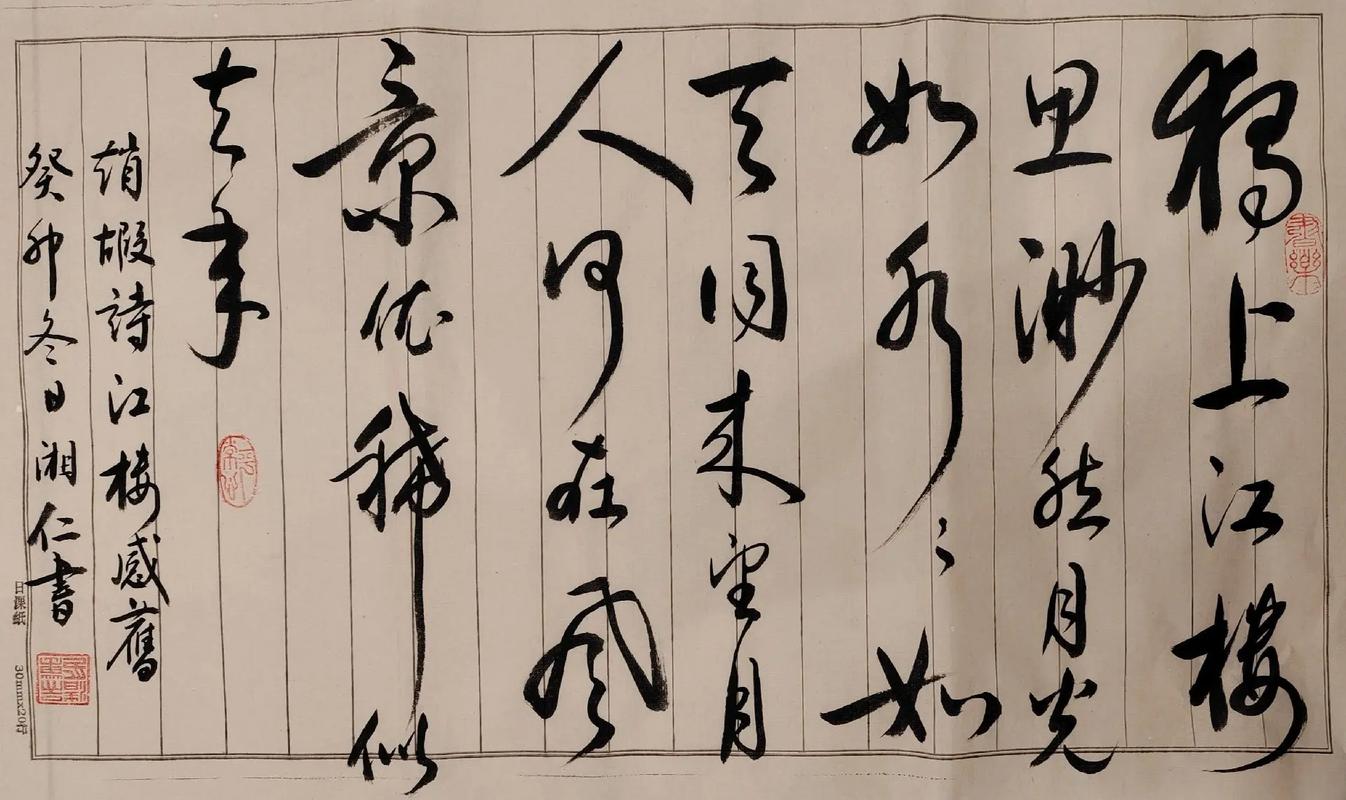 獨上江樓
思渺然月光
如水〻如
天同來望月
人何在風
景依稀似
去年
趙嘏詩江樓感舊
癸卯冬日湘仁書
日課紙 30mmx20行